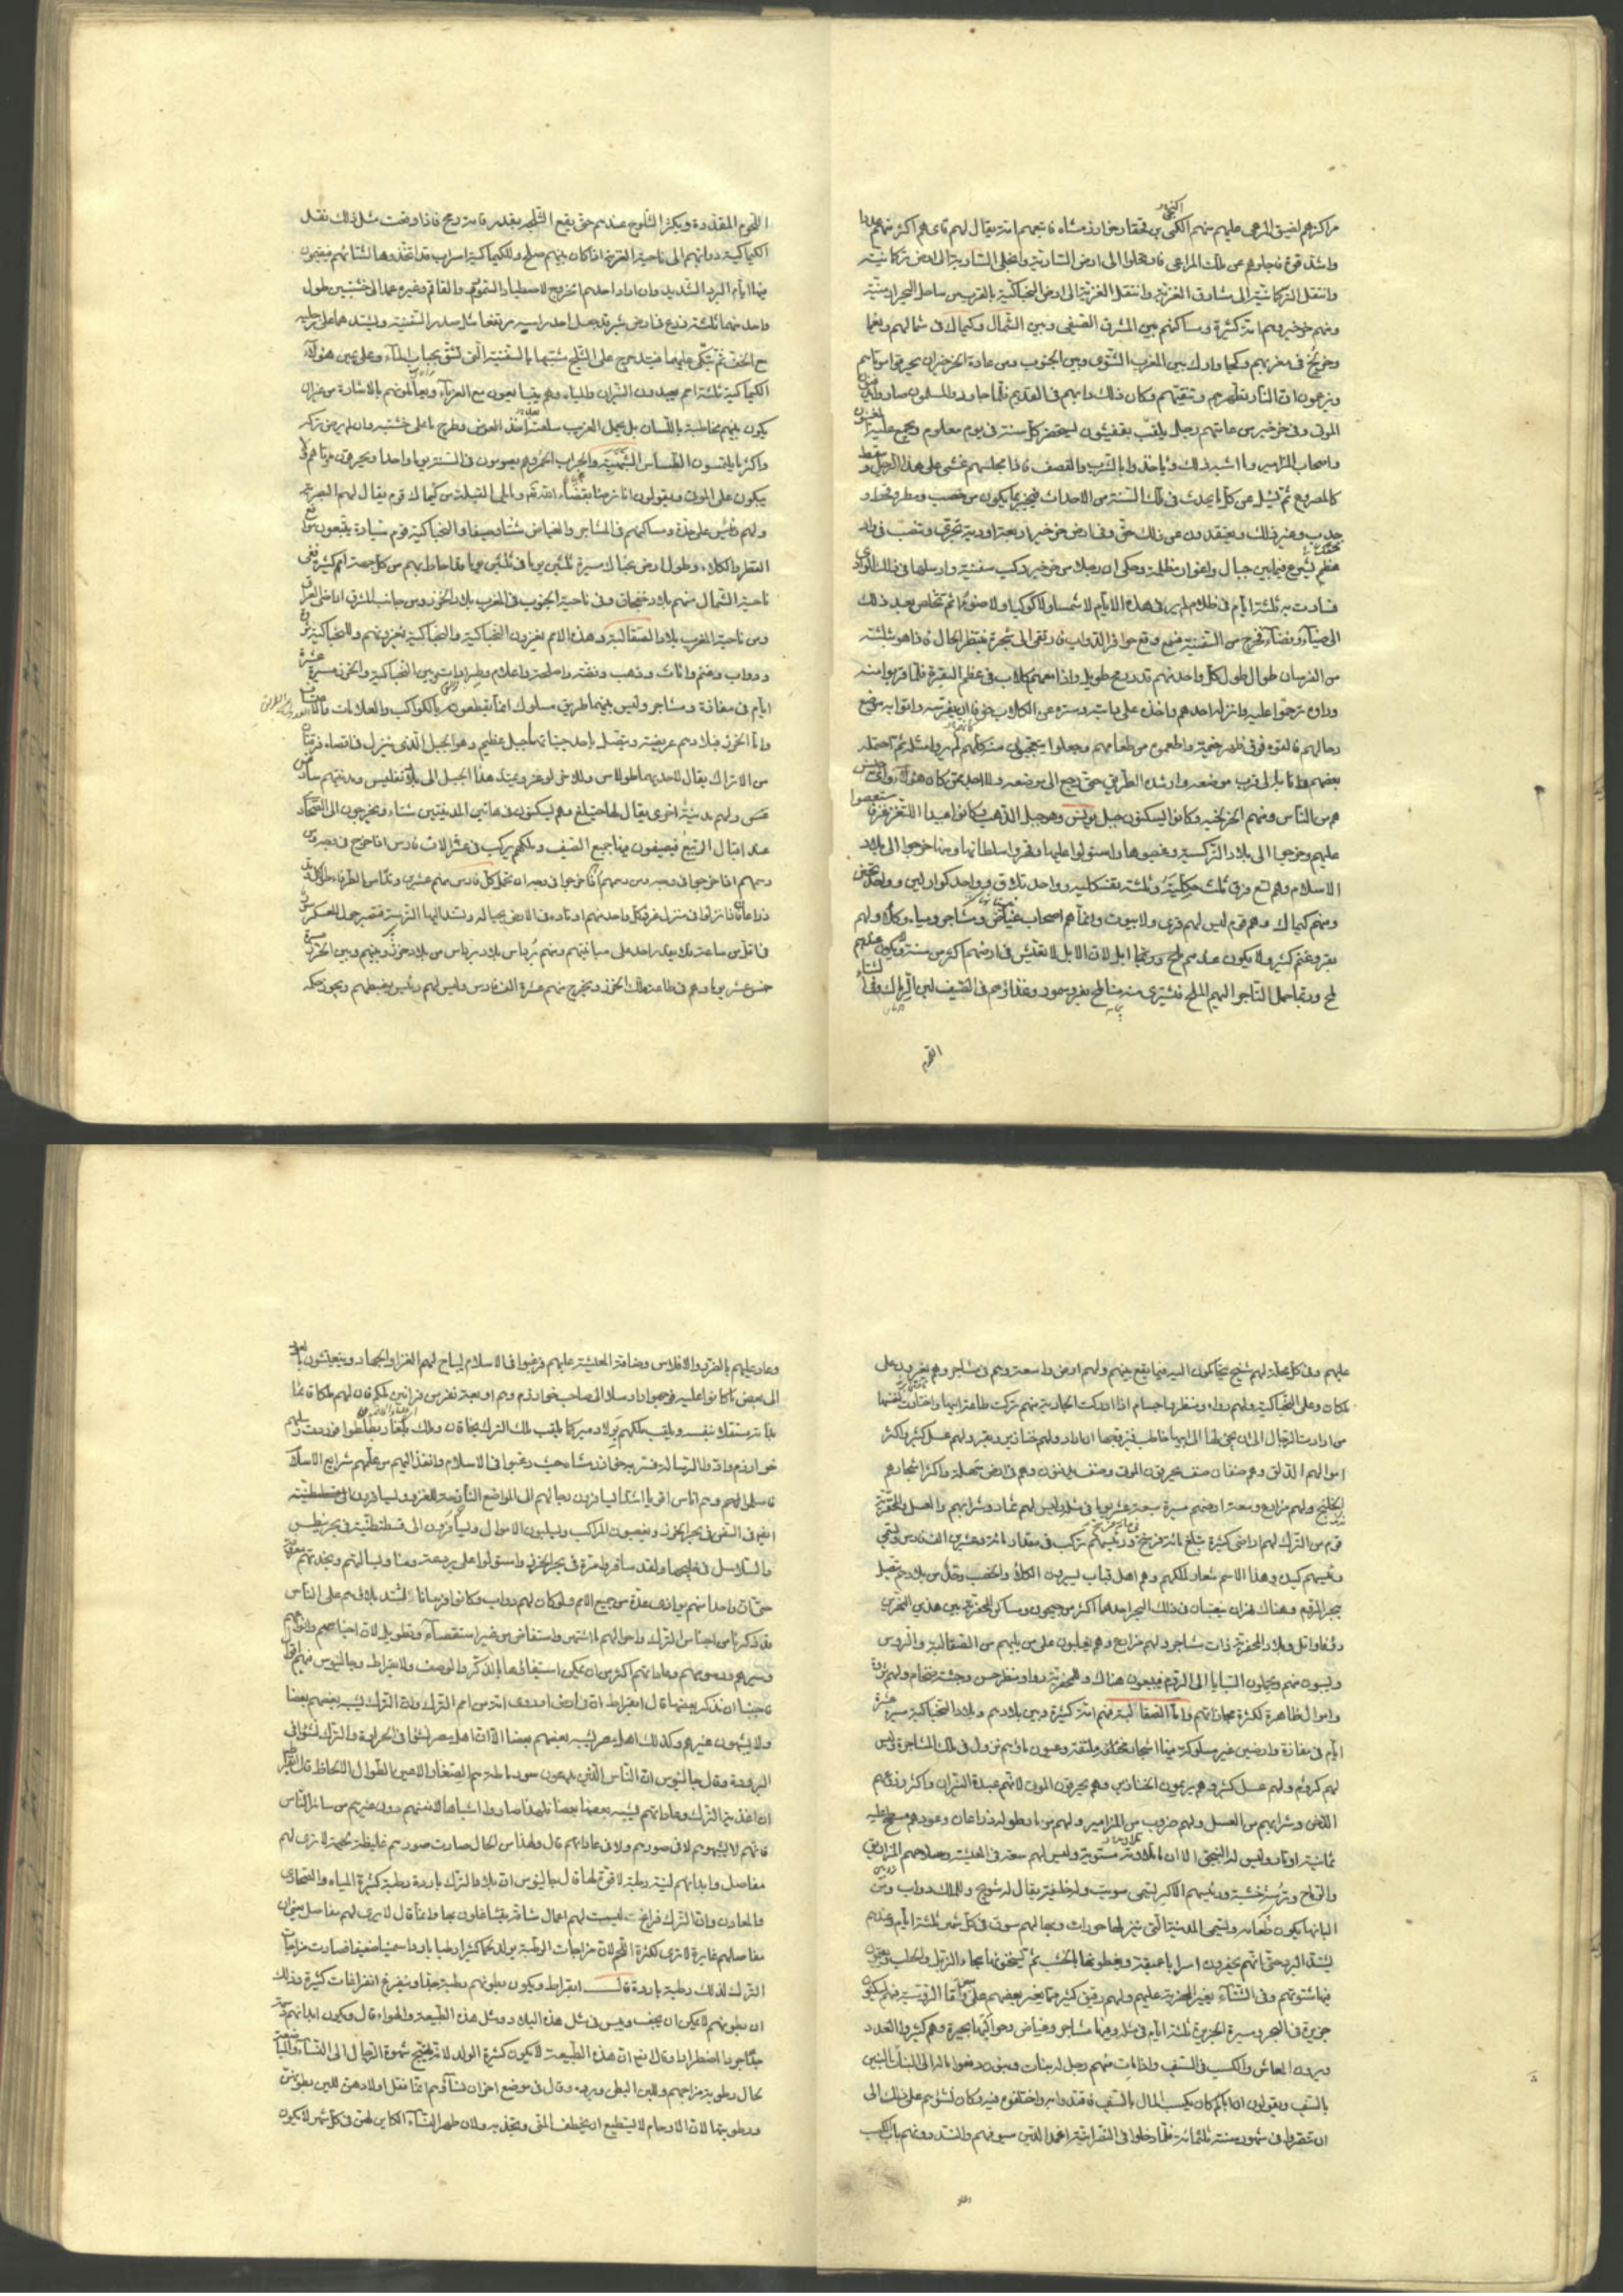 مراكزهم لضيق المرعى عليهم منهم الكنجى بن قحقار خوارزمشاه فاتبعهم امة يقال لهم قاى هم اكثر منهم عددا
واشد قوة فاجلوهم عن تلك المراعى فارتحلوا الى ارض الشارية وانجلى الشارية الى ارض تركمانية
وانتقل التركمانية الى مشارق الغزية وانتقل الغزية الى ارض البجناكية بالقرب من ساحل البحر ارمينية
ومنهم خرخيز وهم امة كثيرة ومساكنهم بين المشرق الصيفى وبين الشمال وكيماك فى شمالهم ويغما
وخرلخ فى مغربهم وكجا وارك بين المغرب الشتوى وبين الجنوب ومن عادة الخرخيز ان يحرقوا موتاهم
ويزعمون ان النار تطهرهم وتنقيهم وكان ذلك دأبهم فى القديم فلما جاوروا المسلمون صاروا يدفنون
الموتى وفى خرخيز من عامتهم رجل يلقب بفغيثون ليحضر كل سنة فى يوم معلوم ويجمع عليه المغنون
واصحاب المزامير وما اشبه ذلك وياخذوا بالشرب والقصف فاذا مجلسهم غشى على هذا الرجل وسقط
كالمصروع ثم يسئل عن كل ما يحدث فى تلك السنة من الاحداث فيخبر بما يكون من خصب ومطر وقحط و
جدب وغير ذلك ويعتقدون عن ذلك حق وفى ارض خرخيز اربعة اودية تجرى وتصب فى واد
عظيم يشرع فيما بين جبال واغوار مظلمة وحكى ان رجلا من خرخيز ركب سفينة وارسلها فى ذلك الوادى
فسارت به ثلثة ايام فى ظلام لم ير فى هذه الايام لا شمسا ولا كوكبا ولا ضوءا ثم تخلص بعد ذلك
الى ضياء وفضاء فخرج من السفينة فسمع وقع حوافر الدواب فارتقى الى شجرة ينتظر الحال فاذا هو بثلثة
من الفرسان طوال طول كل واحد منهم قدر رمح طويل واذا معهم كلاب فى عظم البقرة فلما قربوا منه
وراوه ترحموا عليه وانزله احدهم واخذه على دابته وستره عن الكلاب خوفا ان يفترسه واتوا به موضع
رحالهم فالقوه فوق ظهر خيمة واطعموه من طعامهم وجعلوا يتعجبون منه كانهم لم يروا مثله ثم احتمله
بعضهم واتى به الى قرب موضعه وارشده الطريق حتى رجع الى موضعه ولا احد يعلم من كان هؤلاء واى جنس
هم من الناس ومنهم الخرلخية وكانوا يسكنون جبل تونس وهو جبل الذهب وكانوا عبيدا للتغزغز فاستعصوا
عليهم وخرجوا الى بلاد التركسية وغصبوها واستولوا عليها وقهروا سلطانها ومنها خرجوا الى بلاد
الاسلام وهم تسع فرق ثلث جكلية وثلثة بغسكلية وواحد تلاق وواحد كوارلين وواحد تخسى
ومنهم كيماك وهم قوم ليس لهم قرى ولا بيوت وانما هم اصحاب غياض ومشاجر ومياه وكلاء ولهم
بقر وغنم كثير ولا يكون عندهم ابل لان الابل لا تعيش فى ارضهم اكثر من سنة ولا يكون عندهم
ملح وربما حمل التاجر اليهم الملح فيشترى منه منا ملح بفرو سمور وغذاؤهم فى الصيف لبن الرماك وفى الشتاء
القوم
اللحوم المقددة ويكثر الثلوج عندهم حتى يقع الثلج بقدر قامة رمح فاذا وقعت مثل ذلك نقل
الكيماكية دوابهم الى ناحية الغزية اذا كان بينهم صلح وللكيماكية اسراب قد اتخذوها لشتائهم فيقيمون
فيها ايام البرد الشديد وان اراد احدهم الخروج لاصطياد السمور والقاقم وغيره عمد الى خشبتين طول
واحد منهما ثلثة اذرع فى عرض شبر قد جعل احد راسيه مرتفعا مثل صدر السفينة ويشدهما على رجليه
مع الخف ثم يتكى عليهما فيتدحرج على الثلج مشبها بالسفينة التى تشق عباب الماء وعلى يمين هؤلاء
الكيماكية ثلثة امم يعبدون النيران والمياه وهم يتبايعون مع الغرباء ويعاملونهم بالاشارة من غير ان
يكون بينهم مخاطبة باللسان بل يحمل الغريب سلعته اخذ العوض وطرح ما على خشبه وان لم يرض تركه
واكثر ما يلتمسون الطساس الشبهية والجراب الحمر وهم يصومون فى السنة يوما واحدا ويحرقون موتاهم ولا
يبكون على الموتى ويقولون انا نرضى بقضاء الله ثم ويلى القبلة من كيماك قوم يقال لهم
ولهم رئيس على حدة ومساكنهم فى المشاجر والغياض شتاء وصيفا والبجناكية قوم سيارة يتبعون مواقع
القطر والكلاء وطول ارض بجناك مسيرة ثلثين يوما فى ثلثين يوما وقد احاط بهم من كل جهة امم كثيرة ففى
ناحية الشمال منهم بلاد خفجاق وفى ناحية الجنوب فى المغرب بلاد الخزر ومن جانب المشرق اراضى الغز
ومن ناحية المغرب بلاد الصقالبة وهذه الامم يغزون البجناكية والبجناكية يغزونهم والبجناكية
ودواب وغنم واثاث وذهب وفضة واسلحة واعلام وطرادات وبين البجناكية والخزر مسيرة عشرة
ايام فى مفازة ومشاجر وليس بينهما طريق مسلوك انما يقطعون بالكواكب والعلامات
واما الخزر فبلادهم عريضة ويتصل باحد جنباتها جبل عظيم وهو الجبل الذى ينزل فى اقصاه فرقتان
من الاتراك يقال لاحدهما طولاس وللاخرى لوغر ويمتد هذا الجبل الى بلاد تفليس ومدينتهم سارغش
ولهم مدينة اخرى يقال لها وهم يسكنون فى هاتين المدينتين شتاء ويخرجون الى الصحارى
عند اقبال الربيع فيصيفون بها جميع الصيف وملكهم يركب فى عشرة الاف فارس اذا خرج فى وجه ومن
رسمهم اذا خرجوا فى وجه ان يحمل كل فارس منهم عشرين وتدا من الطرفاء طول كل وتد
ذراعان فاذا نزلوا فى منزل غرز كل واحد منهم اوتاده فى الارض بحياله وتسند اليها الترسة فيصير حول العسكر سور
فى اقل من ساعة ومنهم برداس بلاد برداس من بلاد خزر وبينهم وبين الخزر مسيرة
خمس عشر يوما وهم فى طاعة ملك الخزر ويخرج منهم عشرة الف فارس وليس لهم رئيس يضبطهم ويجوز حكمه
عليهم وفى كل محلة لهم شيخ يتحاكمون اليه فيما يقع بينهم ولهم ارض واسعة وهم فى مشاجر وهم يغيرون على
بلكار وعلى البجناكية ولهم رواء ومنظر واجسام اذا ادركت الجارية منهم تركت طاعة ابيها واختارت لنفسها
من ارادت الرجال الى ان يجئ لها الى ابيها خاطب فيزوجها ان اراد ولهم خنازير وبقر ولهم عسل كثير واكثر
اموالهم الدلق وهم صنفان صنف يحرقون الموتى وصنف يدفنون وهم فى ارض سهلة واكثر اشجارهم
الخلنج ولهم مزارع وسعة ارضهم مسيرة سبعة عشر يوما فى مثله وليس لهم ثمار وشرابهم من العسل والمجغرية
قوم من الترك لهم اراضى كثيرة تبلغ مائة فرسخ ورئيسهم يركب فى مقدار مائة وعشرين الف فارس ويسمى
رئيسهم كنده وهذا الاسم شعار ملكهم وهم اهل قباب يسيرون الكلاء والخصب وحد من بلادهم يتصل
ببحر الروم وهناك نهران يصبان فى ذلك البحر احدهما اكثر من جيحون ومساكن المجغرية بين هذين النهرين
وبلاد المجغرية ذات مشاجر ولهم مزارع وهم يغلبون على من يليهم من الصقالبة والروس
ويسبون منهم ويحملون السبايا الى الروم فيبيعون هناك وللمجغرية رواء ومنظر حسن وجثث ضخام ولهم ثروة
واموال ظاهرة لكثرة تجاراتهم واما الصقالبة فهم امة كثيرة وبين بلادهم وبلاد البجناكية مسيرة عشرة
ايام فى مفازة وارضين غير مسلوكة فيها اشجار مختلفة ملتفة وعيون ماء وهم نزول فى تلك المشاجر وليس
لهم كروم ولهم عسل كثير وهم يرعون الخنازير وهم يحرقون الموتى لانهم عبدة النيران واكثر زرعهم
الدخن وشرابهم من العسل ولهم ضروب من المزامير ولهم مزمار طوله ذراعان وعودهم مسطح عليه
ثمانية اوتار وليس له البنجق الا ان ملاويه مستوية وليس لهم سعة فى المعيشة وسلاحهم المزاريق
والرماح وترسة خشبية ورئيسهم الاكبر يسمى سويت وله خليفة يقال له شريح وللملك دواب ومن
البانها يكون طعامه ويسمى المدينة التى ينزلها حورات وبها لهم سوق فى كل شهر ثلثة ايام وعندهم
يشتد البرد حتى انهم يحفرون اسرابا عميقة ويغطونها بالخشب ثم يسخنونها ببخار الزبل والحطب ويبقون
فيها شتوتهم وفى الشتاء يغير المجغرية عليهم ولهم رقيق كثير مما يغير بعضهم على بعض واما الروسية فهم يسكنون
جزيرة فى البحر ومسيرة الجزيرة ثلثة ايام فى مثله وفيها مشاجر وغياض وحواليها بحيرة وهم كثيروا العدد
ويرون المعاش والكسب فى السيف واذا مات منهم رجل له بنات وبنون دفعوا ماله الى البنات ويخصون البنين
بالسيف ويقولون ان اباكم كان يكسب المال بالسيف فاقتدوا به واخلفوه فيه وكان نشؤهم على ذلك الى
ان تنصروا فى شهور سنة ثلثمائة فلما دخلوا فى النصرانية اغمد الدين سيوفهم وانسد دونهم باب الكسب
وعاد عليهم بالضرر والافلاس وضاقت المعيشة عليهم فرغبوا فى الاسلام ليباح لهم الغزو والجهاد وينتعشون بالعود
الى بعض ما كانوا عليه فوجهوا رسلا الى صاحب خوارزم وهم اربعة نفر من قرابين ملكهم فان لهم ملكا قائما
بذاته مستقلا بنفسه ويلقب ملكهم بولادمير كما يلقب ملك الترك بخاقان وملك بلغار بطلطوا فوردت رسلهم
خوارزم وادوا الرسالة فسر بهم خوارزمشاه حيث رغبوا فى الاسلام وانفذ اليهم من علمهم شرايع الاسلام
فاسلموا وهم اناس اقوياء اشداء يسافرون رجالهم الى المواضع النائية للغزو ويسافرون
ايضا فى السفن فى بحر الخزر ويغصبون المراكب ويسلبون الاموال ويسافرون الى قسطنطنية فى بحر بنطس
والسلاسل فى خليجها ولقد سافروا مرة فى بحر الخزر واستولوا على بردعة وبسالتهم ونجدتهم معروفة
حتى ان واحدا منهم يوازى عدة من جميع الامم ولو كان لهم دواب وكانوا فرسانا لاشتد بلاؤهم على الناس
قد ذكرنا من اجناس الترك واحوالهم ما اشتهر واستفاض من غير استقصاء وتطويل لان اجناسهم وانواعهم
وسيرهم ورسومهم وعاداتهم اكثر من ان يمكن استيفاؤها بالذكر والوصف ولابقراط وجالينوس فيهم اقوال
فاجبنا ان نذكر بعضها قال ابقراط ان فى ارض اوروفى امة من امم الترك وان الترك يشبه بعضهم بعضا
ولا يشبهون غيرهم وكذلك اهل مصر يشبه بعضهم بعضا الا ان اهل مصر نشؤا فى الحرارة والترك نشؤا فى
البرودة وقال جالينوس ان الناس الذين يدعون سورماطه هم الصغار الاعين الطوال الالحاظ قال ابقراط
ان اغذية الترك وعاداتهم يشبه بعضها بعضا فلهذا صاروا اشباها لانفسهم دون غيرهم من سائر الناس
فانهم لا يشبهونهم لا فى صورهم ولا فى عاداتهم قال ولهذا من الحال صارت صورهم غليظة لحمية لا ترى لهم
مفاصل وابدانهم لينة رطبة لا قوة لها قال جالينوس ان بلاد الترك باردة رطبة كثيرة المياه والصحارى
والمعادن وان الترك ليست لهم اعمال شاقة يتشاغلون بها وانما قال لا يرى لهم مفاصل يعنى ان
مفاصلهم غايرة لا ترى لكثرة اللحم لان مزاجات الرطبة يولد لحما كثيرا رطبا باردا سمينا ضعيفا فصارت مزاجات
الترك لذلك رطبة باردة قال ابقراط ويكون بطونهم رطبة جدا ويتفرغ انفراغات كثيرة وذلك
ان بطونهم لا يمكن ان يجف وييبس فى مثل هذه البلاد ومثل هذه الطبيعة والهواء قال ويكون ابدانهم
جدا جردا اضطرارا وقال ايضا ان هذه الطبيعة لا يكون كثيرة الولد لانه لا يهيج شهوة الرجال الى النساء
بحال رطوبة مزاجهم ولين البطن وبرده وقال فى موضع اخر ان نساؤهم انما تقل اولادهن للين بطونهن
ورطوبتها لان الارحام لا يستطيع ان يخطف المنى وتجذبه ولان طهر النساء الكاين لهن فى كل شهر لا يكون